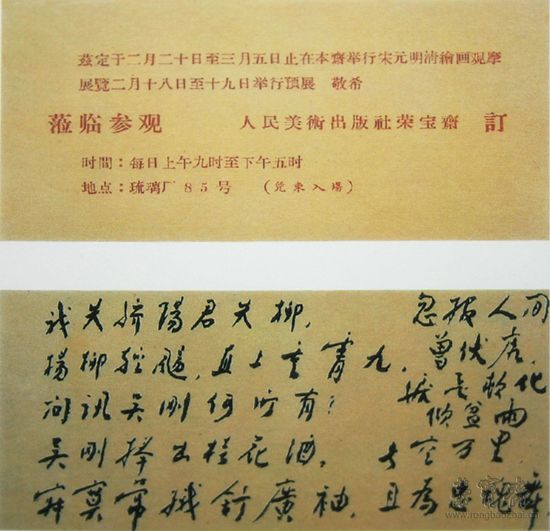 茲定于二月二十日至三月五日止在本齋举行宋元明清繪画观摩
展覽二月十八日至十九日举行預展 敬希
蒞临参观 人民美術出版社荣宝齋 訂
时間：每日上午九时至下午五时
地点：琉璃厂85号 （凭柬入場）
我失娇陽君失柳，
楊柳轻颺，直上重霄九，
问讯吴刚何所有？
吴刚捧出桂花酒。
寂寞常娥舒廣袖，
长空万里
且為忠魂舞
忽报人间
曾伏虎，
泪飞顿化
倾盆雨
www.rongbaozhai.cn